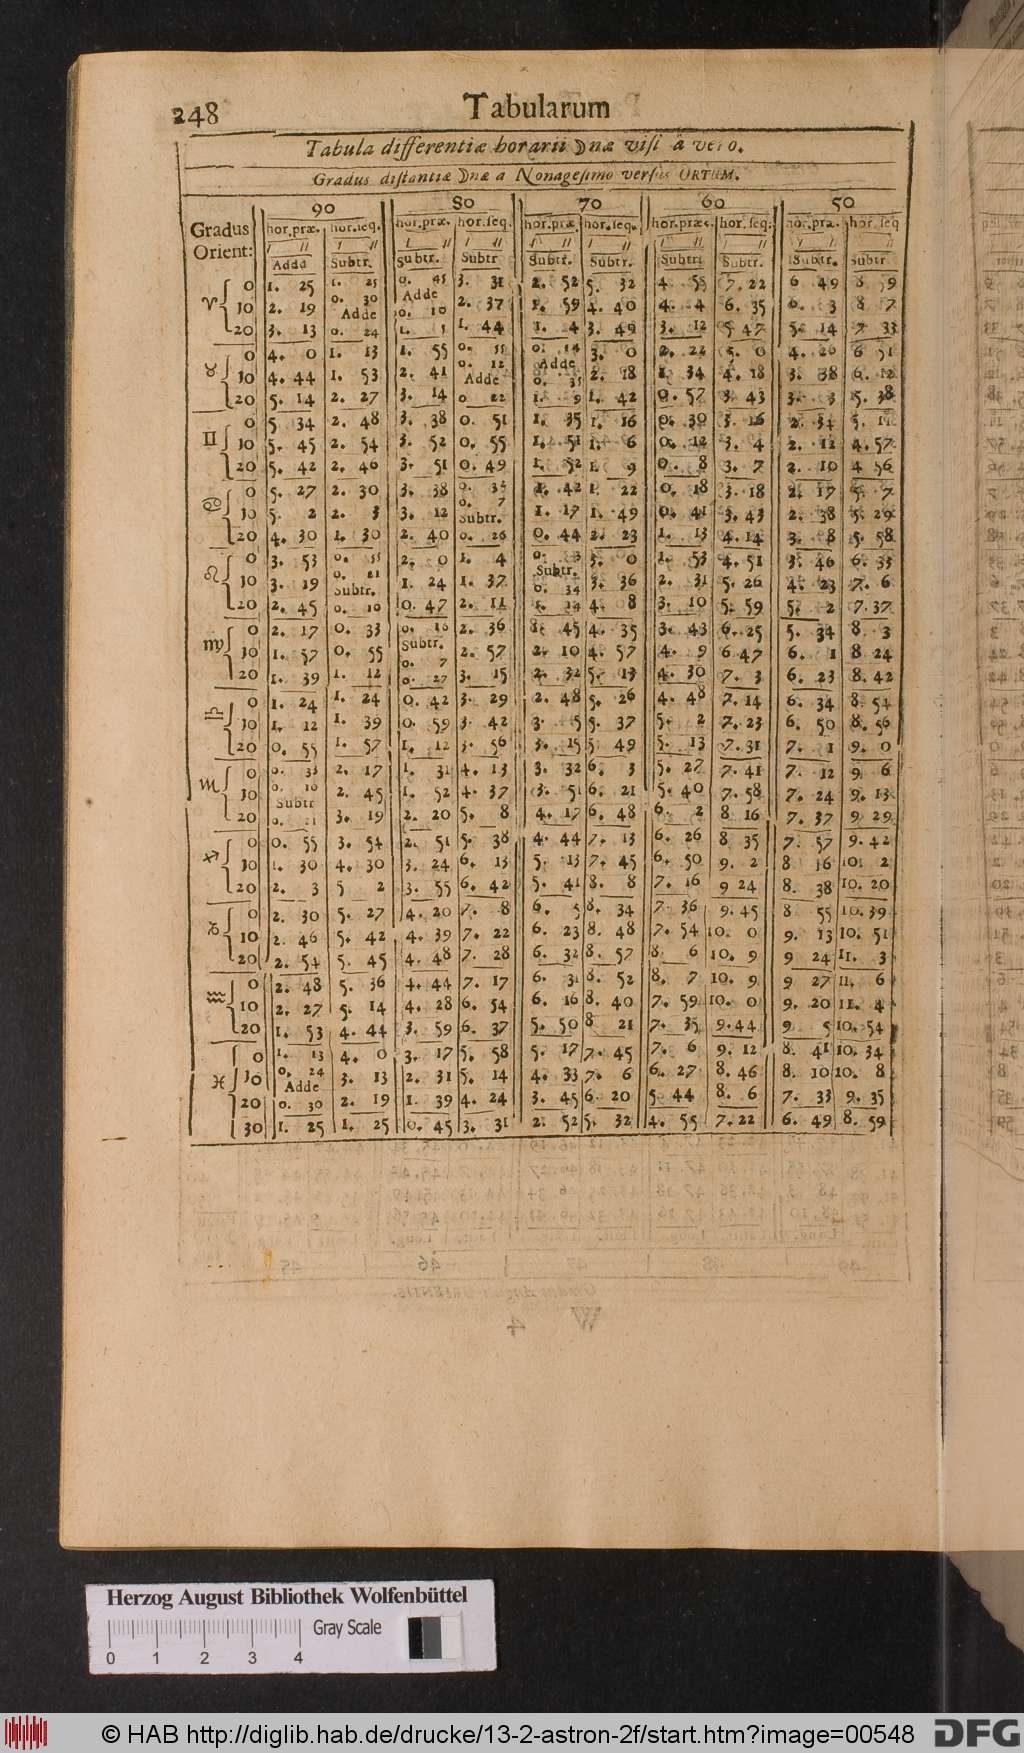 248 Tabularum
Tabula differentiæ horarii ☽næ visi à vero.
Gradus distantiæ ☽næ a Nonagesimo versus ORTUM.
Gradus Orient: 90 80 70 60 50
hor.præ. hor.seq. hor.præ. hor.seq. hor.præ. hor.seq. hor.præc. hor.seq. hor.præ. hor.seq
Adde Subtr. Subtr. Subtr Subtr. Subtr. Subtr Subtr. Subtr. Subtr
♈ 0 1. 25 1. 25 0. 45 3. 31 2. 52 5. 32 4. 55 7. 22 6 49 8 59
Adde
10 2. 19 0. 30 0. 10 2. 37 1. 59 4. 40 4. 4 6. 35 6. 3 8 7
Adde
20 3. 13 0. 24 1. 3 1. 44 1. 4 3. 49 3. 12 5 47 5. 14 7 33
♉ 0 4. 0 1. 13 1. 55 0. 55 0. 14 3. 0 2. 22 5. 0 4. 26 6 51
Adde
10 4. 44 1. 53 2. 41 0. 12 0. 35 2. 18 1. 34 4. 18 3. 38 6. 12
Adde
20 5. 14 2. 27 3. 14 0 22 1. 9 1. 42 0. 57 3. 43 3. 3 5. 38
♊ 0 5 34 2. 48 3. 38 0. 51 1. 35 1. 16 0. 30 3. 16 2. 34 5. 11
10 5. 45 2. 54 3. 52 0. 55 1. 51 1. 6 0. 12 3. 4 2. 12 4. 57
20 5. 42 2. 46 3. 51 0. 49 1. 52 1. 9 0. 8 3. 7 2. 10 4 56
♋ 0 5. 27 2. 30 3. 38 0. 32 1. 42 1. 22 0. 18 3. 18 2. 17 5. 7
10 5. 2 2. 3 3. 12 0. 7 1. 17 1. 49 0. 41 3. 43 2. 38 5. 29
Subtr.
20 4. 30 1. 30 2. 40 0. 26 0. 44 2. 23 1. 13 4. 14 3. 8 5. 58
♌ 0 3. 53 0. 55 2. 0 1. 4 0. 3 3. 0 1. 53 4. 51 3. 46 6. 33
Subtr.
10 3. 19 0. 21 1. 24 1. 37 0. 34 3. 36 2. 31 5. 26 4. 23 7. 6
Subtr.
20 2. 45 0. 10 0. 47 2. 11 1. 24 4. 8 3. 10 5. 59 5. 2 7. 37
♍ 0 2. 17 0. 33 0. 16 2. 36 1. 45 4. 35 3. 43 6. 25 5. 34 8. 3
Subtr.
10 1. 57 0. 55 0. 7 2. 57 2. 10 4. 57 4. 9 6 47 6. 1 8 24
20 1. 39 1. 12 0. 27 3. 15 2. 32 5. 13 4. 30 7. 3 6. 23 8. 42
♎ 0 1. 24 1. 24 0. 42 3. 29 2. 48 5. 26 4. 48 7. 14 6. 34 8. 54
10 1. 12 1. 39 0. 59 3. 42 3. 5 5. 37 5. 2 7. 23 6. 50 8. 56
20 0. 55 1. 57 1. 12 3. 56 3. 15 5 49 5. 13 7. 31 7. 1 9. 0
♏ 0 0. 33 2. 17 1. 31 4. 13 3. 32 6. 3 5. 27 7. 41 7. 12 9. 6
10 0. 10 2. 45 1. 52 4. 37 3. 51 6. 21 5. 40 7. 58 7. 24 9. 13
Subtr
20 0. 21 3. 19 2. 20 5. 8 4. 17 6. 48 6. 2 8 16 7. 37 9 29
♐ 0 0. 55 3. 54 2. 51 5. 38 4. 44 7. 13 6. 26 8 35 7. 57 9. 42
10 1. 30 4. 30 3. 24 6. 13 5. 13 7. 45 6. 50 9. 2 8 16 10. 2
20 2. 3 5 2 3. 55 6. 42 5. 41 8. 8 7. 16 9 24 8. 38 10. 20
♑ 0 2. 30 5. 27 4. 20 7. 8 6. 5 8. 34 7 36 9. 45 8 55 10. 39
10 2. 46 5. 42 4. 39 7. 22 6. 23 8. 48 7. 54 10. 0 9. 13 10. 51
20 2. 54 5. 45 4. 48 7. 28 6. 32 8. 57 8. 6 10. 9 9 24 11. 3
♒ 0 2. 48 5. 36 4. 44 7. 17 6. 31 8. 52 8. 7 10. 9 9 27 11. 6
10 2. 27 5. 14 4. 28 6. 54 6. 16 8. 40 7. 59 10. 0 9. 20 11. 4
20 1. 53 4. 44 3. 59 6. 37 5. 50 8 21 7. 35 9. 44 9 5 10. 54
♓ 0 1. 13 4. 0 3. 17 5. 58 5. 17 7. 45 7. 6 9. 12 8. 41 10. 34
10 0. 24 3. 13 2. 31 5. 14 4. 33 7. 6 6. 27 8. 46 8. 10 10. 8
Adde
20 0. 30 2. 19 1. 39 4. 24 3. 45 6 20 5 44 8. 6 7. 33 9. 35
30 1. 25 1. 25 0. 45 3. 31 2. 52 5. 32 4. 55 7. 22 6. 49 8. 59
Herzog August Bibliothek Wolfenbüttel
Gray Scale
0 1 2 3 4
© HAB http://diglib.hab.de/drucke/13-2-astron-2f/start.htm?image=00548
DFG